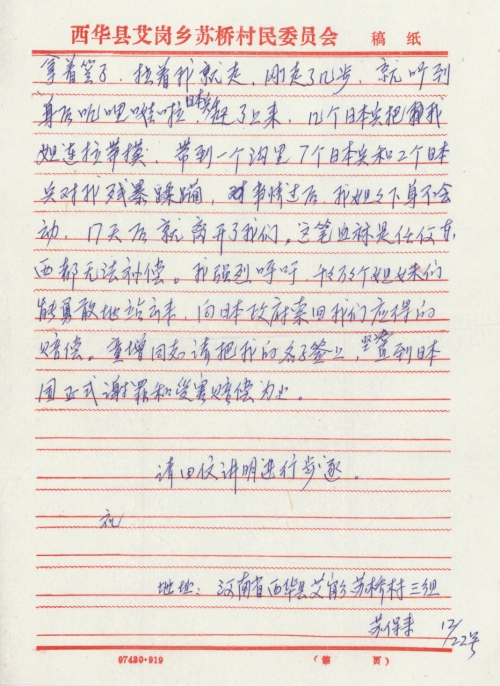 西华县艾岗乡苏桥村民委员会 稿纸
拿着筐子，拉着我就走，刚走了几步，就听到
身后叽哩哇啦日本兵赶了上来，几个日本兵把我
姐连拉带摸，带到一个沟里7个日本兵和2个日本
兵对我残暴蹂躏，事情过后，我姐之下身不会
动，17天后就离开了我们。这笔血债是任何东
西都无法补偿。我强烈呼吁，姐妹们
能勇敢地站出来，向日本政府索回我们应得的
赔偿。童增同志请把我的名子签上，坚签到日本
国正式谢罪和受害赔偿为止。
请回信讲明进行步逐。
礼
地址：河南省西华县艾岗乡苏桥村三组
苏保来 12/22号
97430·919 （第 页）